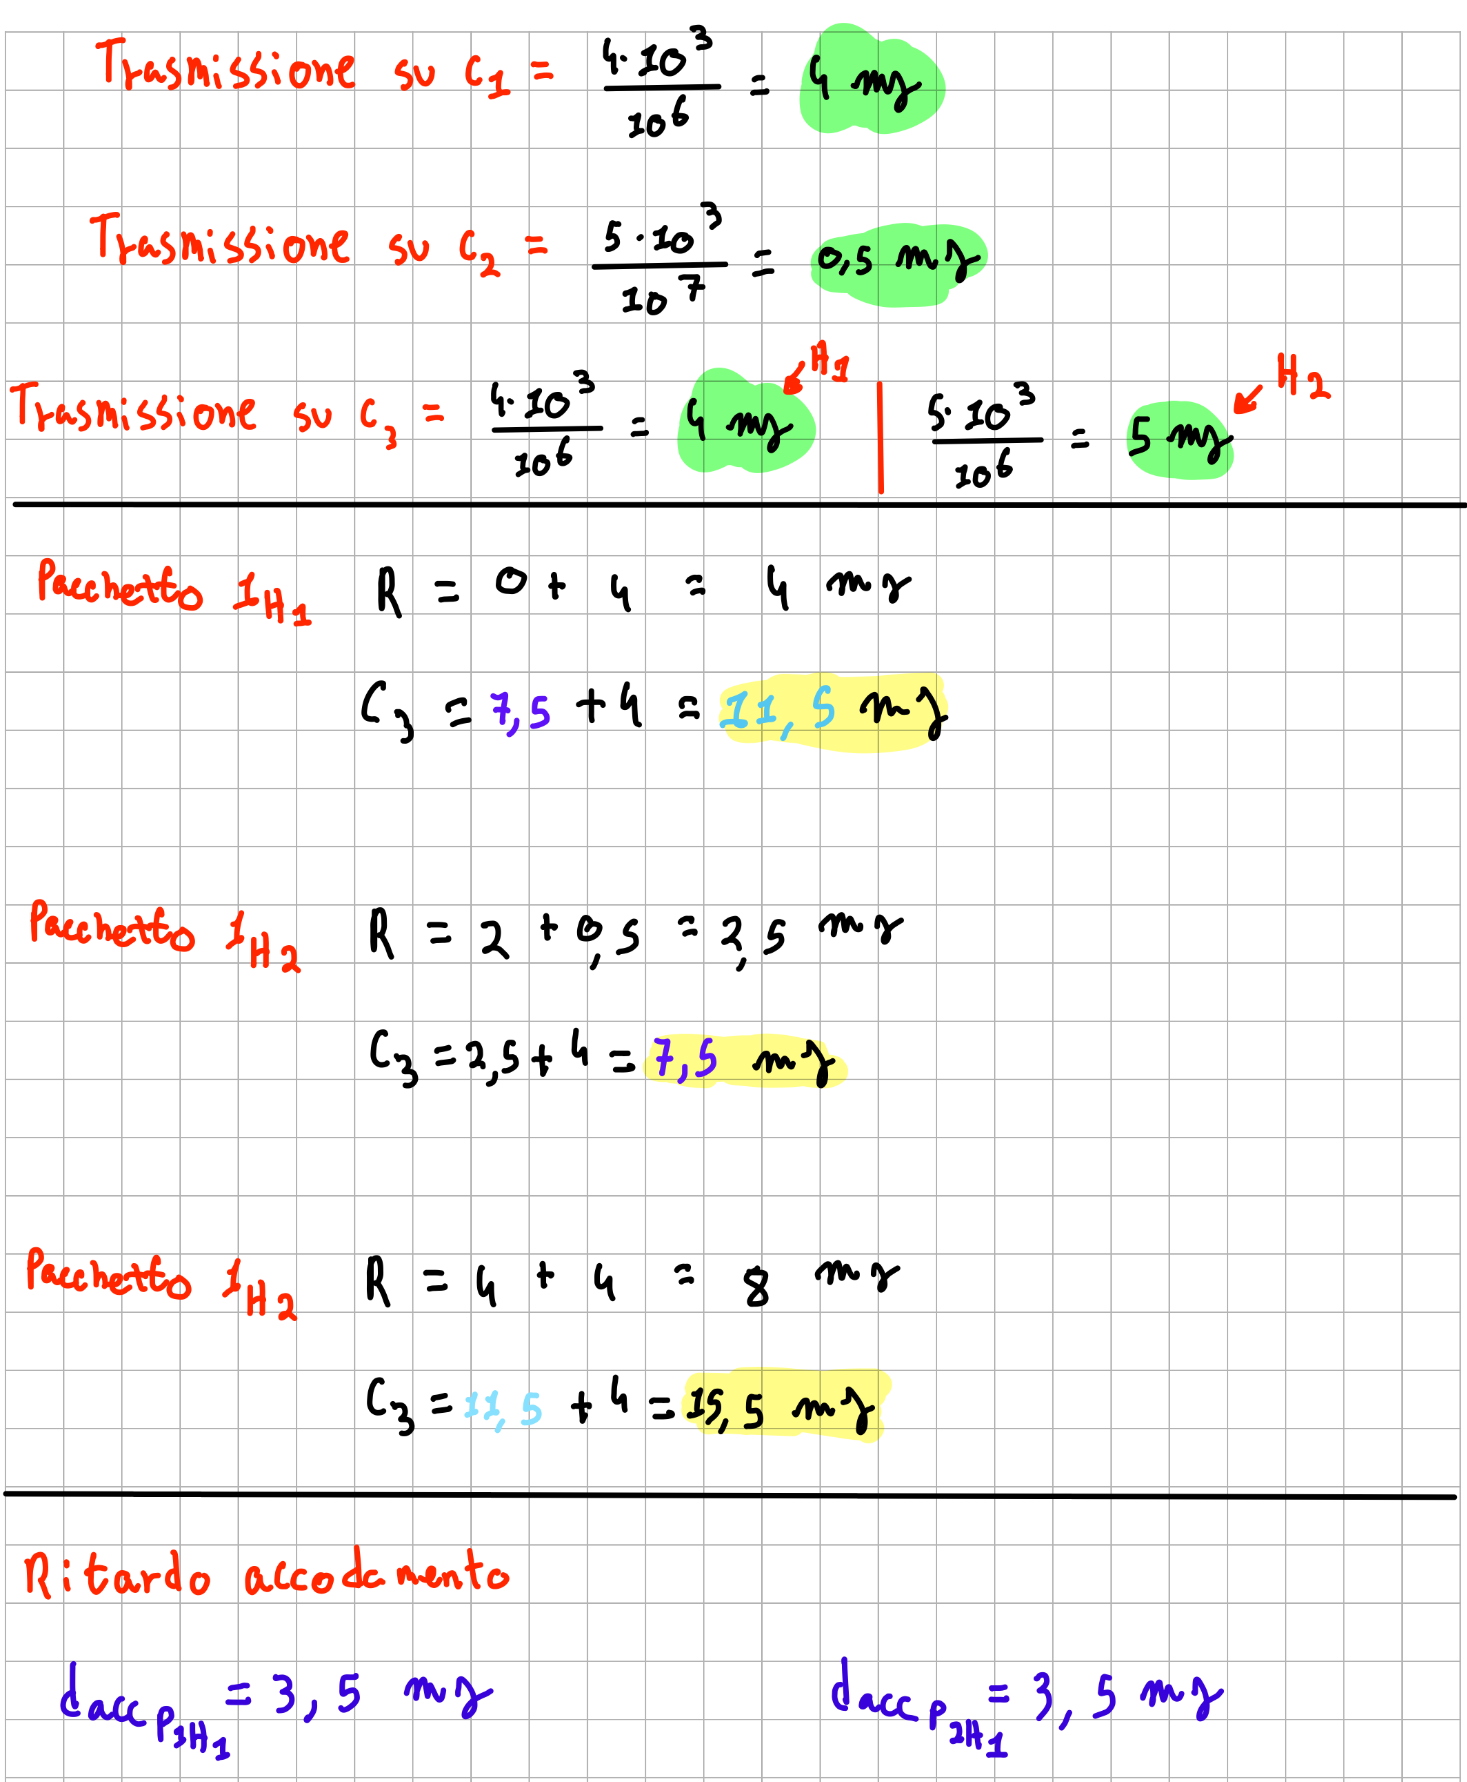 Trasmissione su C1 = 4·10^3 / 10^6 = 4 ms
Trasmissione su C2 = 5·10^3 / 10^7 = 0,5 ms
Trasmissione su C3 = 4·10^3 / 10^6 = 4 ms ← H1 | 5·10^3 / 10^6 = 5 ms ← H2
Pacchetto 1H1 R = 0 + 4 = 4 ms
C3 = 7,5 + 4 = 11,5 ms
Pacchetto 1H2 R = 2 + 0,5 = 2,5 ms
C3 = 2,5 + 4 = 7,5 ms
Pacchetto 1H2 R = 4 + 4 = 8 ms
C3 = 11,5 + 4 = 15,5 ms
Ritardo accodamento
dacc P1H1 = 3,5 ms dacc P2H1 = 3,5 ms